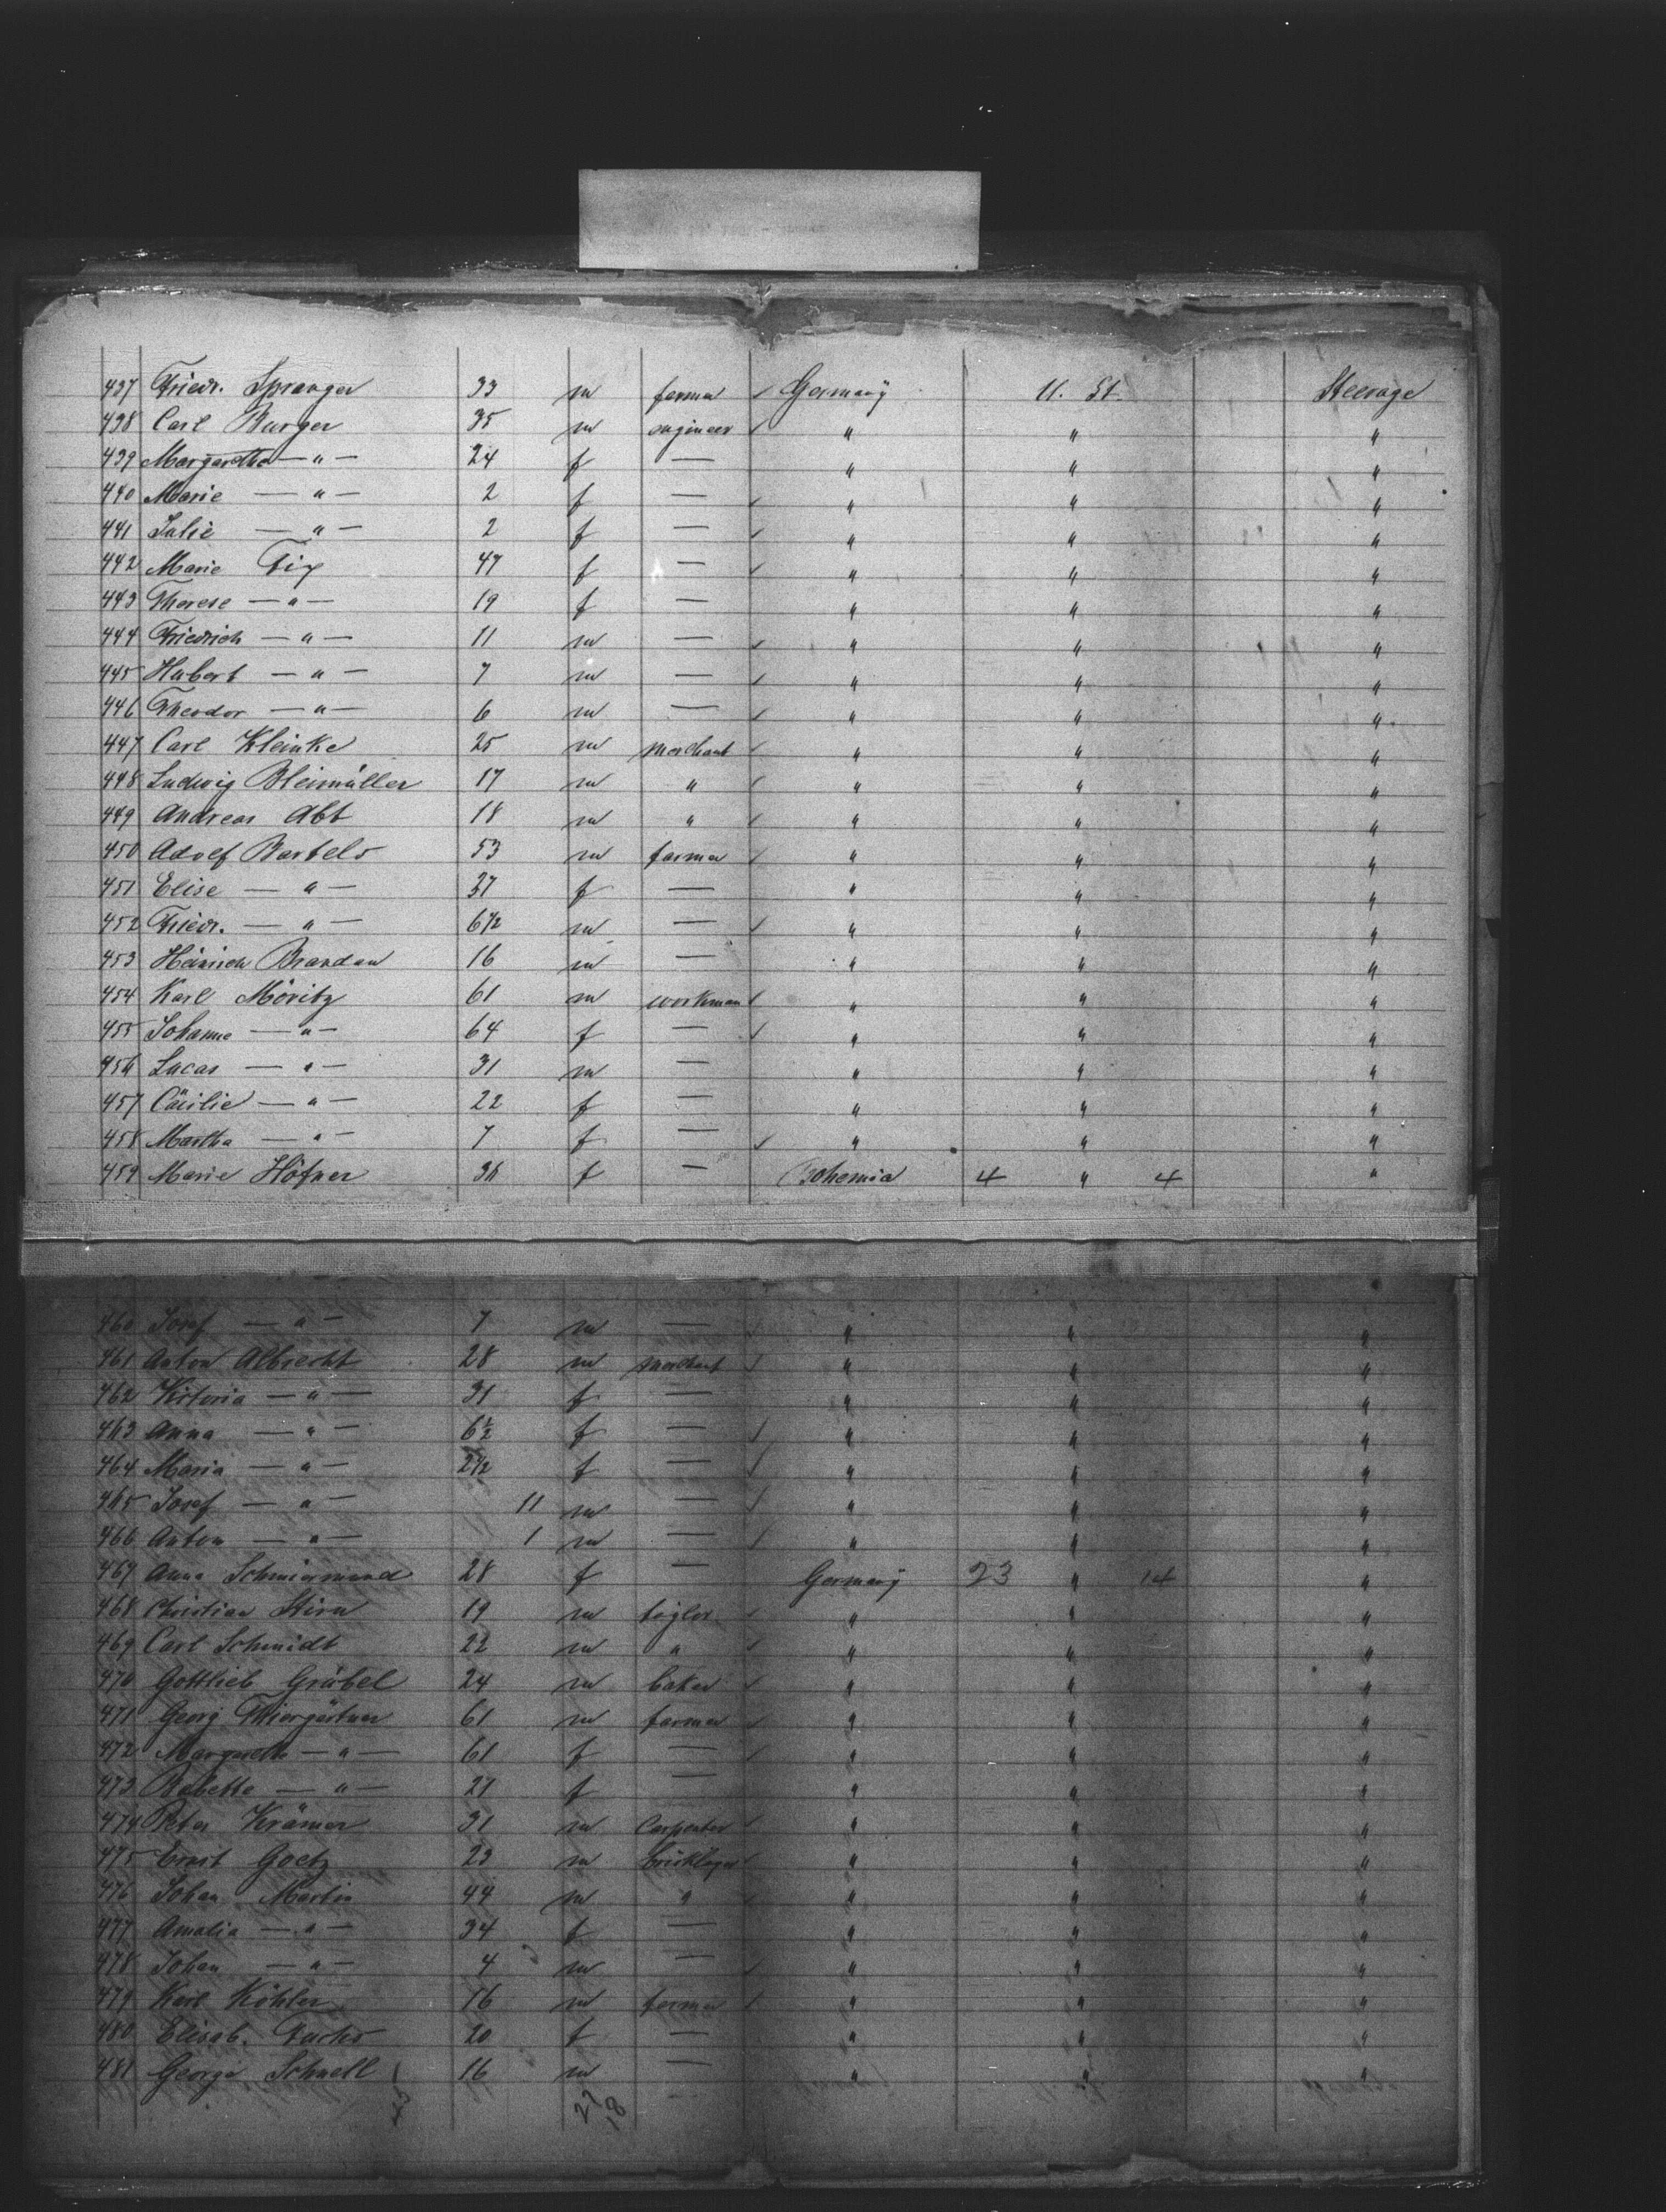 437 Friedr. Spranger 33 m farmer ✓ Germany U. St. Steerage
438 Carl Burger 35 m engineer ✓ " " "
439 Margaretha — " — 24 f — " " "
440 Marie — " — 2 f — ✓ " " "
441 Julie — " — 2 f — ✓ " " "
442 Marie Fix 47 f — ✓ " " "
443 Therese — " — 19 f — " " "
444 Friedrich — " — 11 m — ✓ " " "
445 Hubert — " — 7 m — ✓ " " "
446 Theodor — " — 6 m — ✓ " " "
447 Carl Kleinke 25 m merchant ✓ " " "
448 Ludwig Bleimüller 17 m " ✓ " " "
449 Andreas Abt 18 m " ✓ " " "
450 Adolf Bartels 53 m farmer ✓ " " "
451 Elise — " — 37 f — " " "
452 Friedr. — " — 6 1/2 m — ✓ " " "
453 Heinrich Brandau 16 m — " " "
454 Karl Möritz 61 m workman ✓ " " "
455 Johanne — " — 64 f — ✓ " " "
456 Lucas — " — 31 m — " " "
457 Cäcilie — " — 22 f — " " "
458 Martha — " — 7 f — ✓ " " "
459 Marie Höfner 36 f — Bohemia 4 " 4 "
460 Josef — " — 7 m — ✓ " " "
461 Anton Albrecht 28 m merchant ✓ " " "
462 Viktoria — " — 31 f — " " "
463 Anna — " — 6 1/2 f — ✓ " " "
464 Maria — " — 2 1/2 f — ✓ " " "
465 Josef — " — 11 m — ✓ " " "
466 Anton — " — 1 m — ✓ " " "
467 Anna Schmiermund 28 f — Germany 23 " 14 "
468 Christian Stirn 19 m ✓ " " "
469 Carl Schmidt 22 m " ✓ " " "
470 Gottlieb Gräbel 24 m baker ✓ " " "
471 Georg Thiergärtner 61 m farmer ✓ " " "
472 Margareth — " — 61 f — ✓ " " "
473 Babette — " — 27 f — " " "
474 Peter Krämer 31 m Carpenter ✓ " " "
475 Ernst Goetz 23 m bricklayer ✓ " " "
476 Johan Martin 44 m " ✓ " " "
477 Amalia — " — 34 f — " " "
478 Johan — " — 4 m — ✓ " " "
479 Karl Köhler 16 m farmer ✓ " " "
480 Elisab. Fuchs 20 f — " " "
481 George Schnell 16 m — " " "
27
18